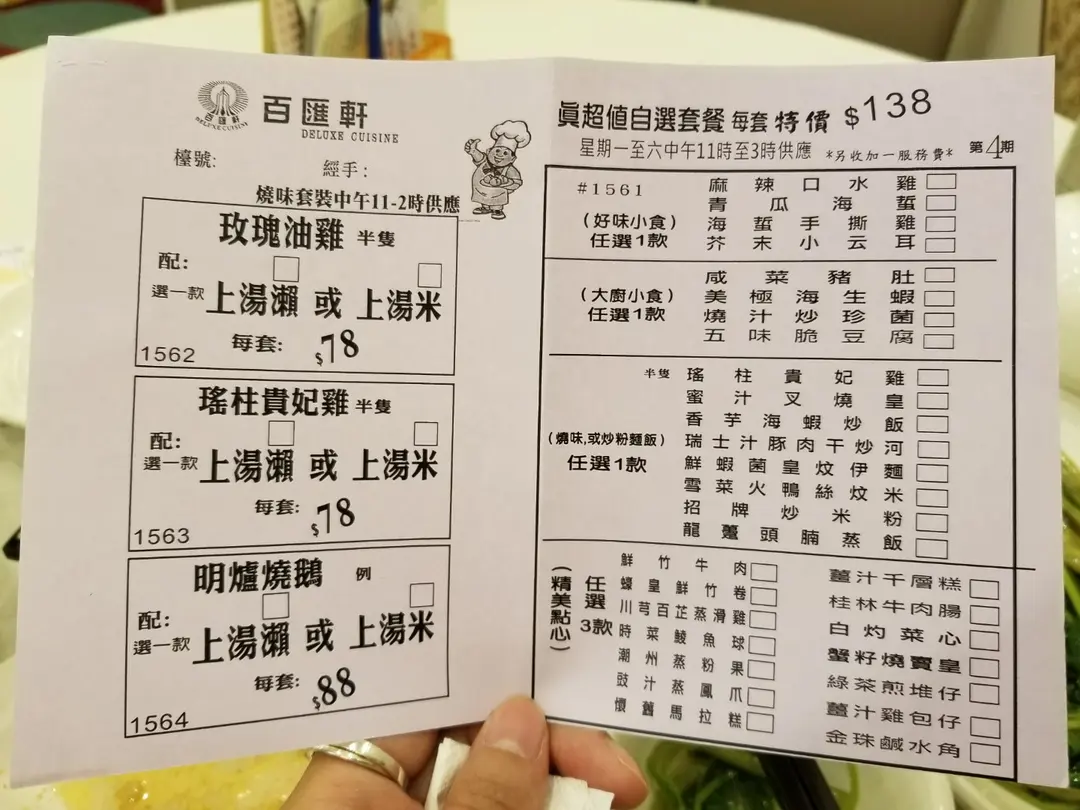 百匯軒
DELUXE CUISINE
百匯軒
DELUXE CUISINE
檯號:
經手:
燒味套裝中午11-2時供應
玫瑰油雞 半隻
配:
選一款 上湯瀨 或 上湯米
每套: $78
1562
瑤柱貴妃雞 半隻
配:
選一款 上湯瀨 或 上湯米
每套: $78
1563
明爐燒鵝 例
配:
選一款 上湯瀨 或 上湯米
每套: $88
1564
眞超值自選套餐 每套 特價 $138
星期一至六中午11時至3時供應 *另收加一服務費* 第4期
#1561
(好味小食)
任選1款
麻辣口水雞
青瓜海蜇
海蜇手撕雞
芥末小云耳
(大廚小食)
任選1款
咸菜豬肚
美極海生蝦
燒汁炒珍菌
五味脆豆腐
(燒味,或炒粉麵飯)
任選1款
半隻 瑤柱貴妃雞
蜜汁叉燒皇
香芋海蝦炒飯
瑞士汁豚肉干炒河
鮮蝦菌皇炆伊麵
雪菜火鴨絲炆米
招牌炒米粉
龍躉頭腩蒸飯
(精美點心)
任選3款
鮮竹牛肉
蠔皇鮮竹卷
川芎百芷蒸滑雞
時菜鯪魚球
潮州蒸粉果
豉汁蒸鳳爪
懷舊馬拉糕
薑汁千層糕
桂林牛肉腸
白灼菜心
蟹籽燒賣皇
綠茶煎堆仔
薑汁雞包仔
金珠鹹水角